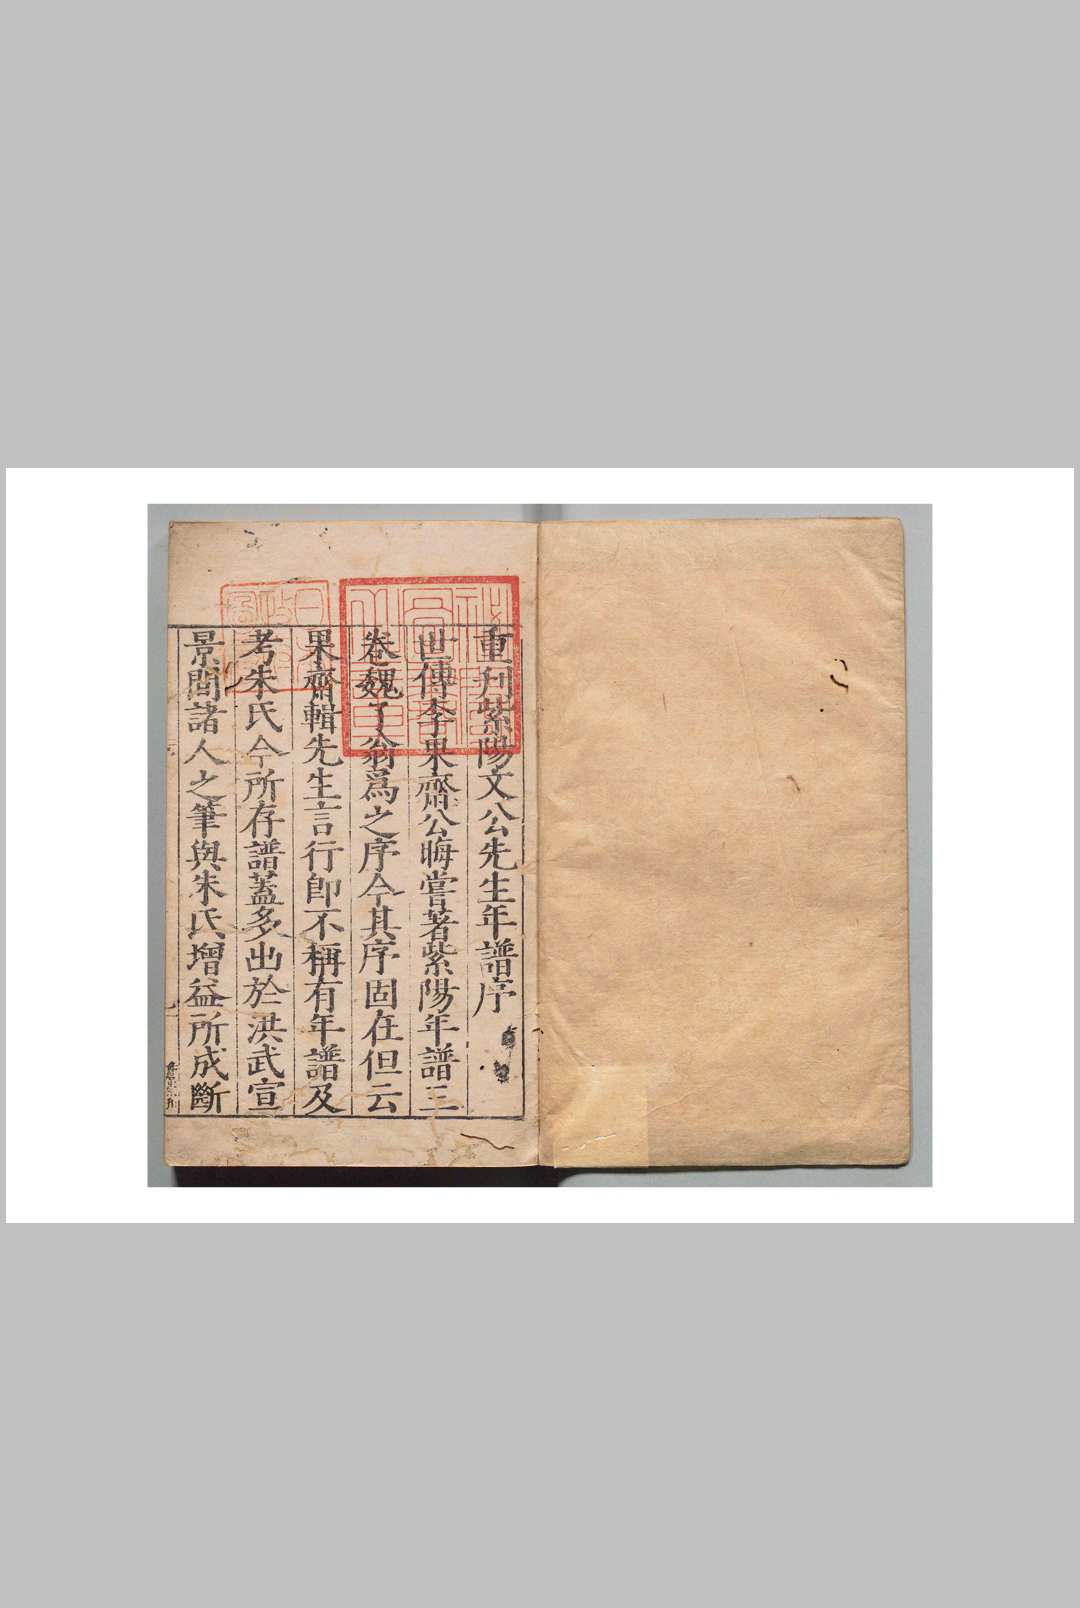 重刋紫陽文公先生年譜序
世傳李果齋公晦嘗著紫陽年譜三
卷魏了翁爲之序今其序固在但云
果齋輯先生言行卽不稱有年譜及
考朱氏今所存譜蓋多出於洪武宣
景間諸人之筆與朱氏增益所成斷